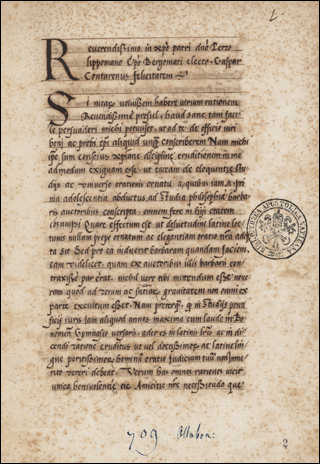 Reverendissimo in xpo patri dno Petro
lippomano Epo Bergomati electo Gaspar
Contarenus felicitatem
Si meae voluissem habere virium rationem
Reverendissime praesul, haud sane tam facile
persuaderi michi potuisset, ut ad te de officio viri
boni ac probi epi aliquid conscriberem Nam michi
ipse sum conscius xpianae disciplinae eruditionem in me
admodum exiguam esse, ut taceam de eloquentiae studijs
ac universo orationis ornatu, a quibus iam a prima
adolescentia abductus, ad studia philosophiae barbaris
auctoribus conscripta omnem fere in his aetatem
consumpsi Quare effectum est ut desuetudine latinae locutionis
nullum prope ornatum ac elegantiam oratio mea
sit Sed pro ea induerit barbariem quandam faciem,
eam videlicet, quam ex auctoribus illis barbaris contraxisse
par erat. nichil vere tibi mittendum esse
quod ad rerum ac gravitatem non omni ex
parte excultum esset. Nam in studijs
iuris iam aliquod annos maxima cum laude
Gymnasio versaris, adeo es in latinis ac in dicendi
ratione eruditus ut vel doctissimos, ac latinae linguae
peritissimos homines oratio iudicium tuum
vereri debeat. Verum has omnes rationes vicit
unica benivolentiae Amicitiae necessitudo que
BIBLIOTHECA APOSTOLICA VATICANA
709 Ottobon:
2